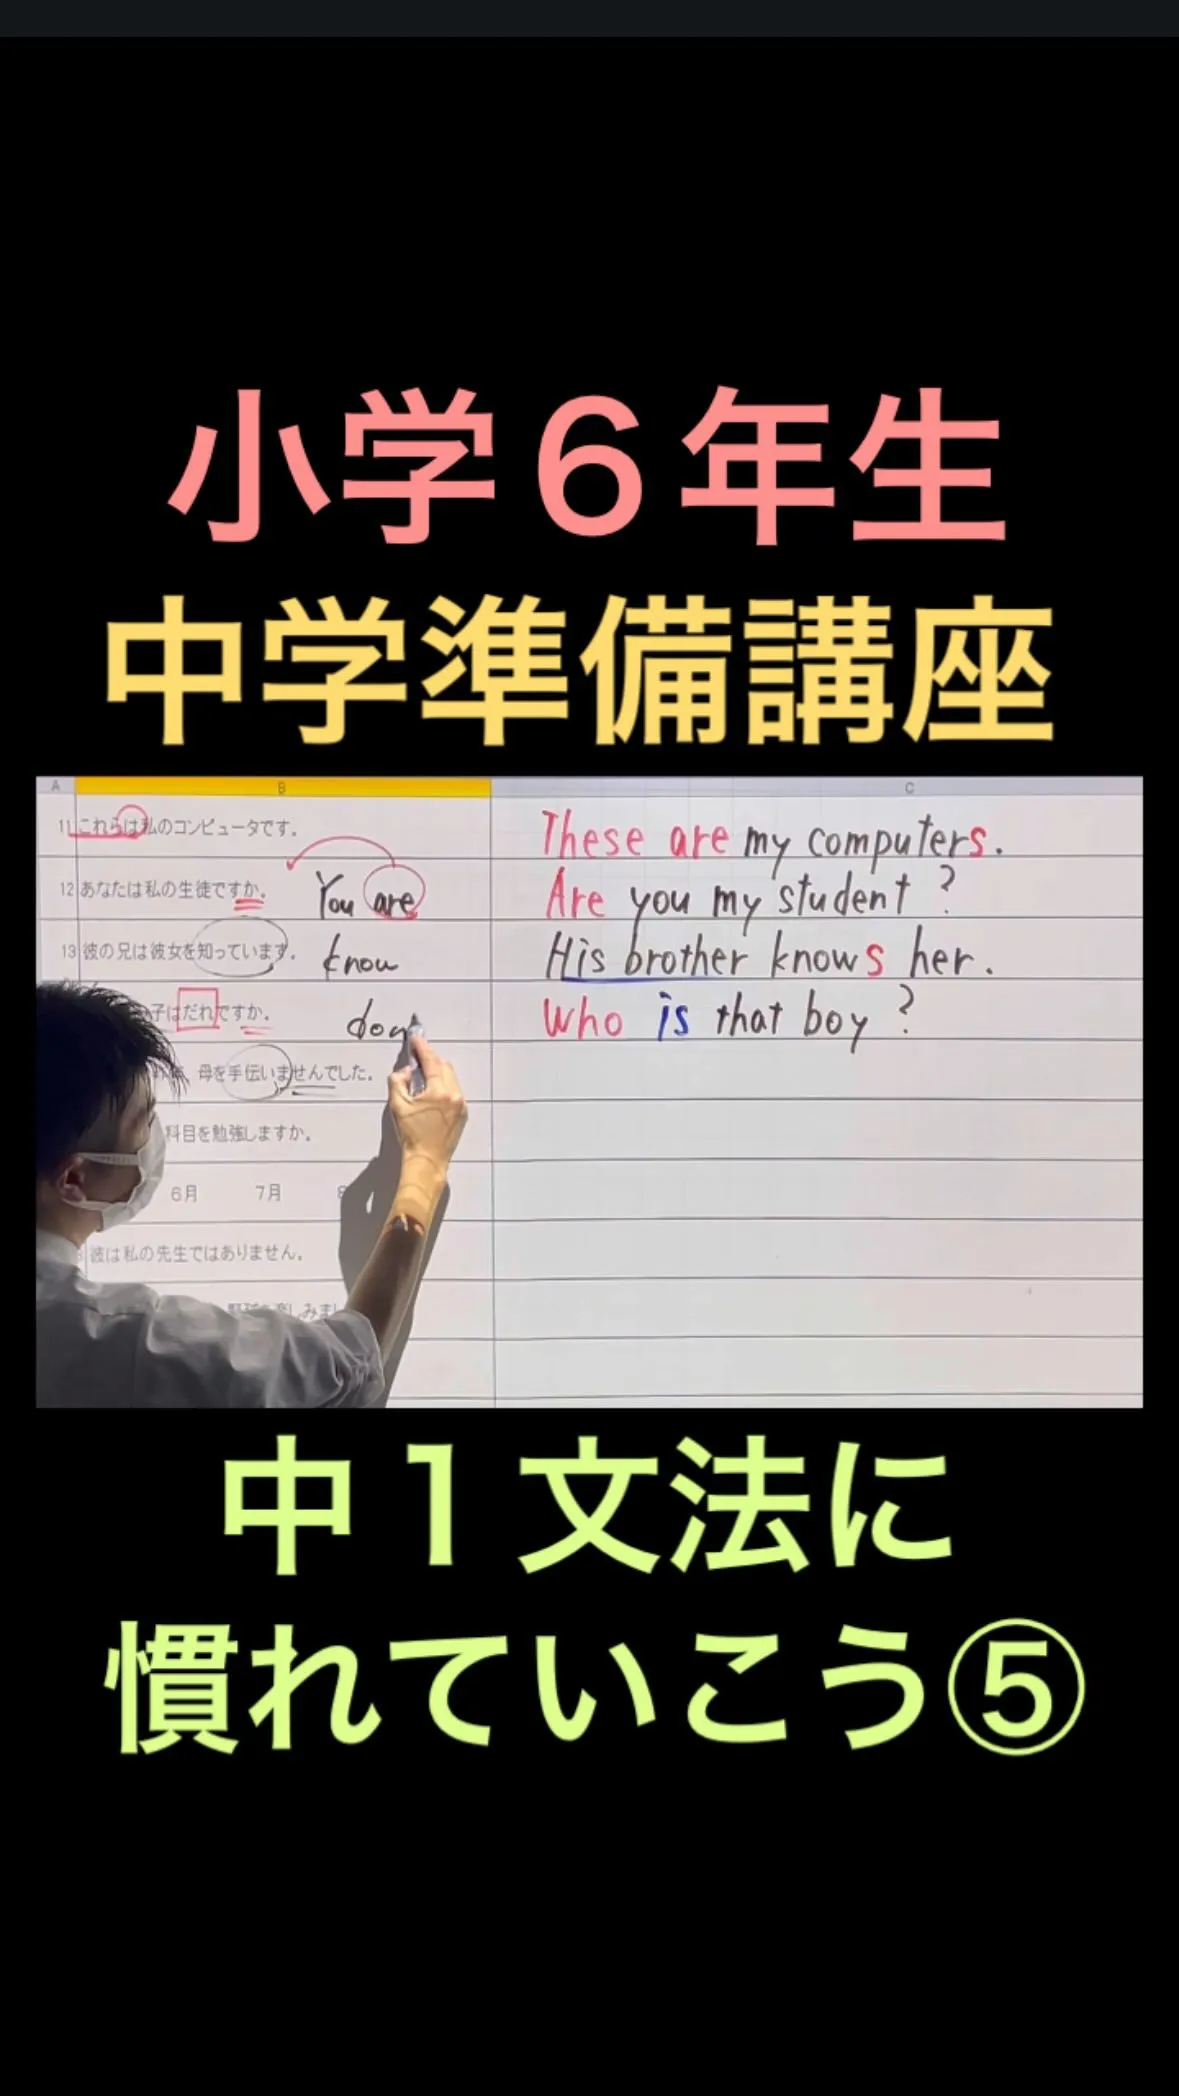 小学６年生
中学準備講座
A B C
11 これらは私のコンピュータです。 These are my computers.
12 あなたは私の生徒ですか。 You are Are you my student ?
13 彼の兄は彼女を知っています。 know His brother knows her.
子はだれですか。 don Who is that boy ?
母を手伝いませんでした。
科目を勉強しますか。
6月 7月 8
彼は私の先生ではありません。
野球を楽しみまし
中１文法に
慣れていこう⑤